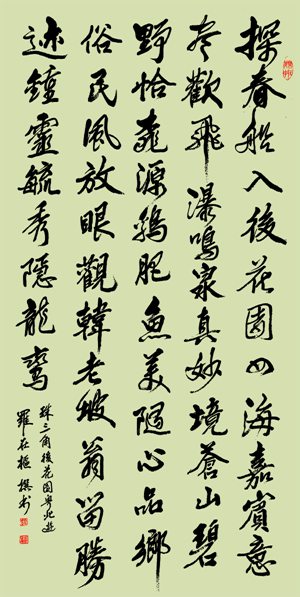 探春船入後花園四海嘉賓意
尽歡飛瀑鳴泉真妙境蒼山碧
野恰桃源鷄肥魚美隨心品鄉
俗民風放眼觀韓老坡翁留勝
迹鐘靈毓秀隱龍鸞
珠三角後花園粤北遊
羅在樞撰书